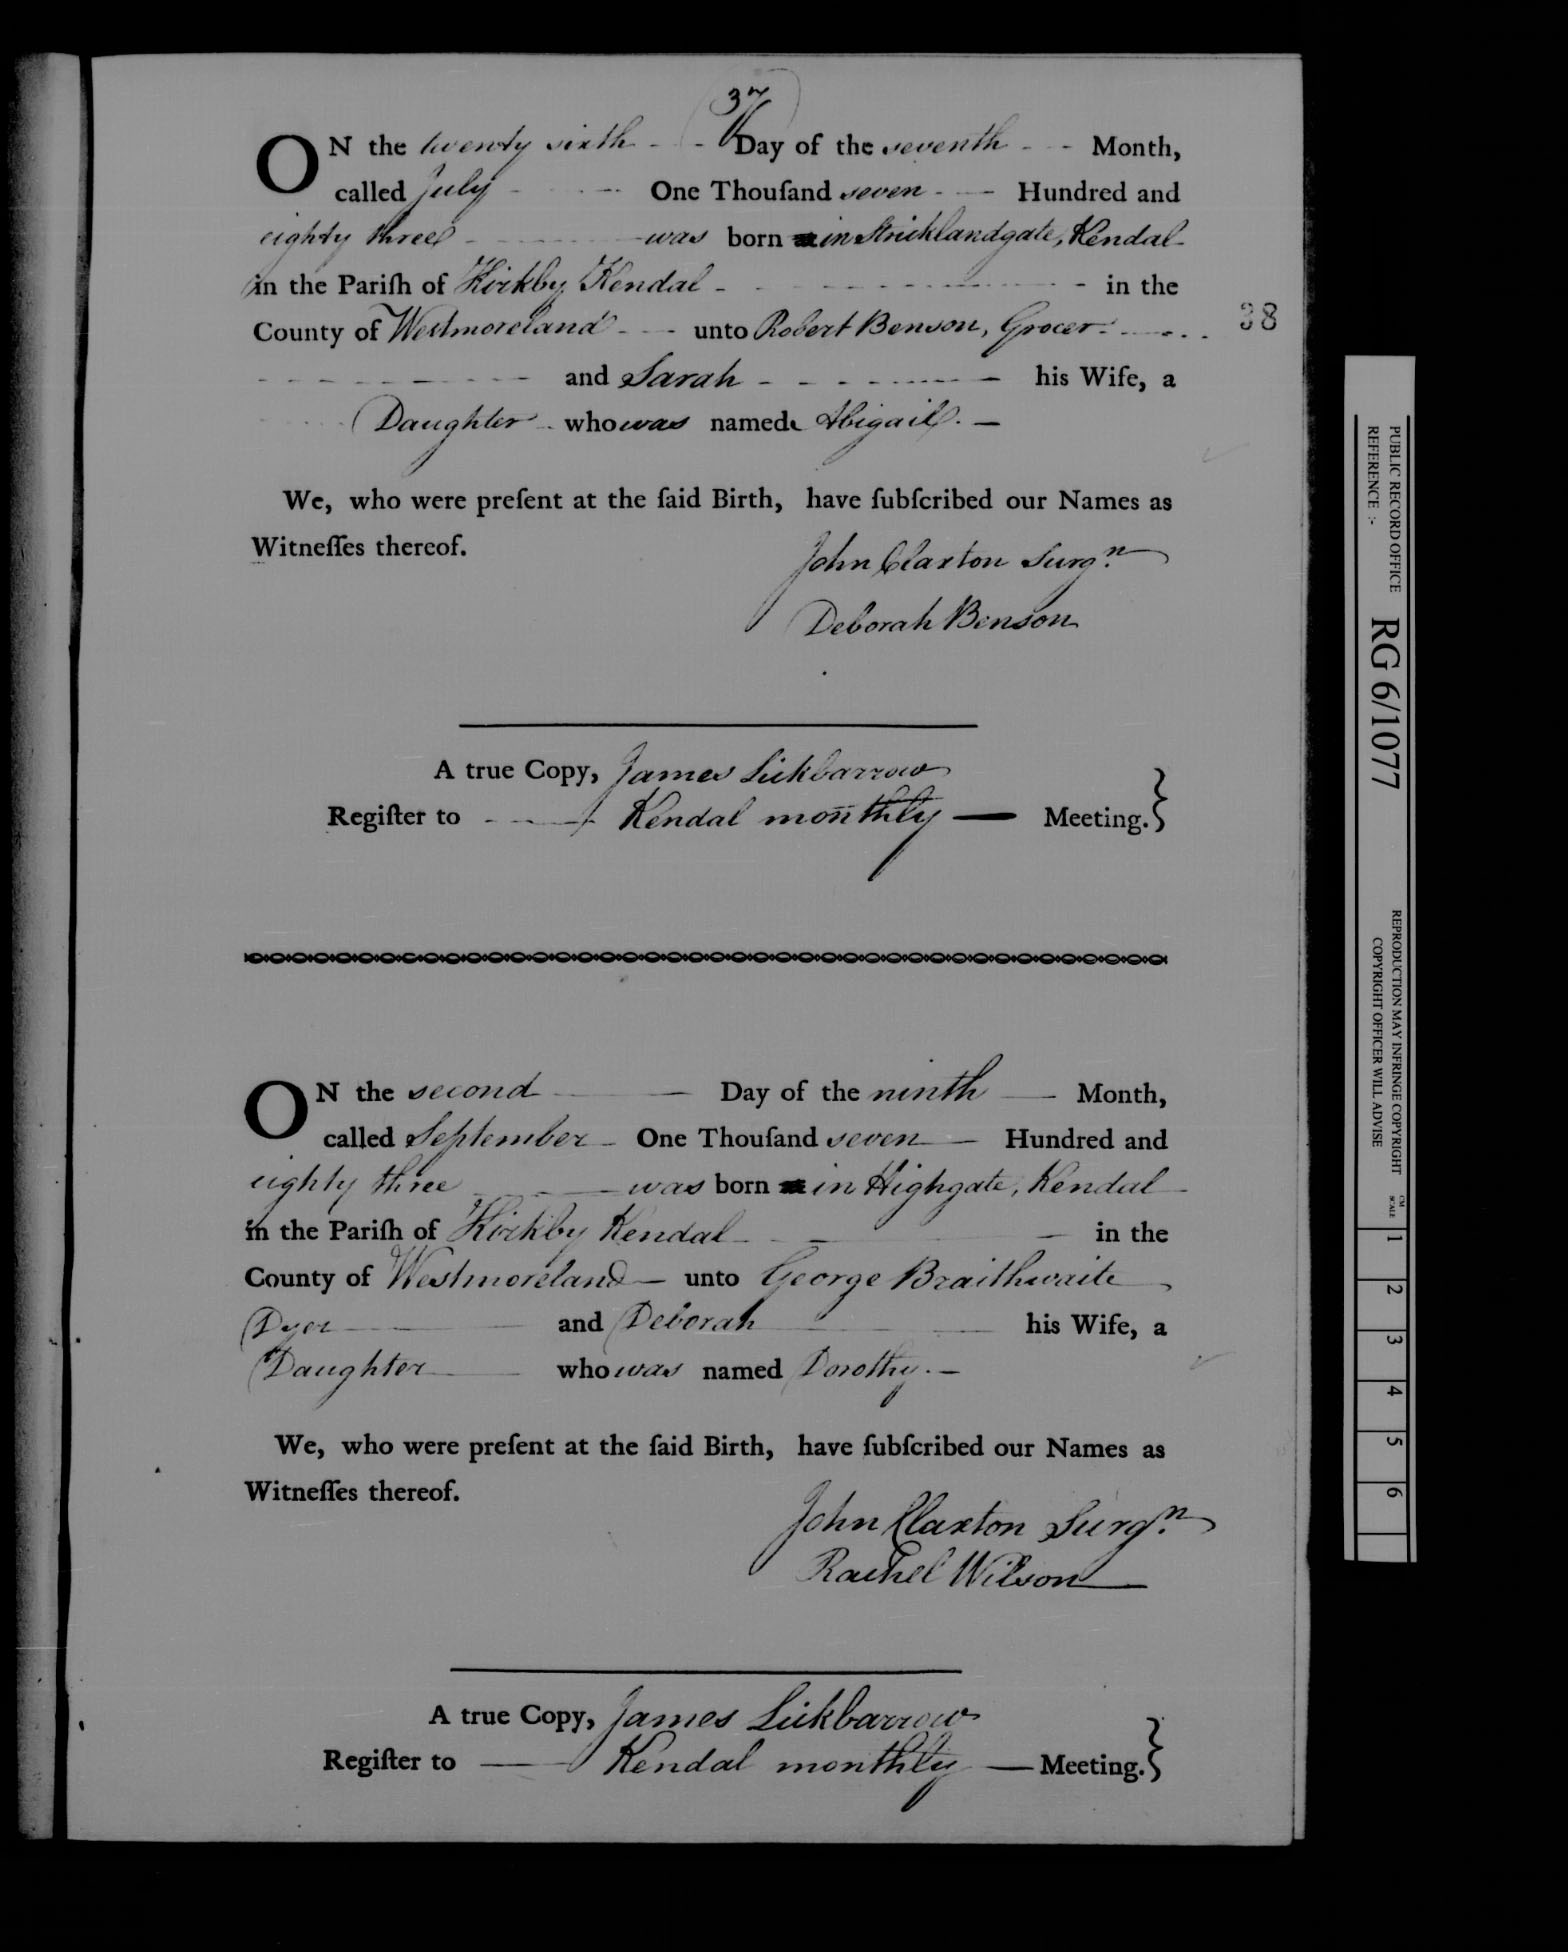 37
ON the twenty sixth Day of the seventh Month,
called July One Thouſand seven Hundred and
eighty three was born in Stricklandgate, Kendal
in the Pariſh of Kirkby Kendal in the
County of Westmoreland unto Robert Benson, Grocer
38
and Sarah his Wife, a
Daughter who was named Abigail.
We, who were preſent at the ſaid Birth, have ſubſcribed our Names as
Witneſſes thereof.
John Claxton Surgn.
Deborah Benson
A true Copy, James Lickbarrow
Regiſter to Kendal monthly Meeting.}
ON the second Day of the ninth Month,
called September One Thouſand seven Hundred and
eighty three was born in Highgate, Kendal
in the Pariſh of Kirkby Kendal in the
County of Westmoreland unto George Braithwaite
Dyer and Deborah his Wife, a
Daughter who was named Dorothy.
We, who were preſent at the ſaid Birth, have ſubſcribed our Names as
Witneſſes thereof.
John Claxton Surgn.
Rachel Wilson
A true Copy, James Lickbarrow
Regiſter to Kendal monthly Meeting.}
PUBLIC RECORD OFFICE
REFERENCE :-
RG 6/1077
REPRODUCTION MAY INFRINGE COPYRIGHT
COPYRIGHT OFFICER WILL ADVISE
CM
SCALE
1 2 3 4 5 6